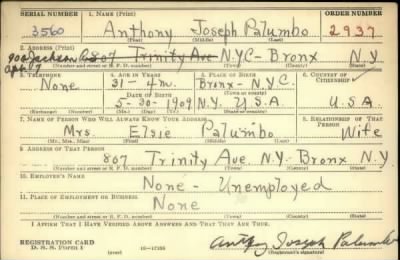 SERIAL NUMBER 1. NAME (Print) ORDER NUMBER
3560 Anthony Joseph Palumbo 2937
(First) (Middle) (Last)
2. ADDRESS (Print)
900 Jackson 807 Trinity Ave N.Y.C- Bronx N.Y.
(Number and street or R. F. D. number) (Town) (County) (State)
3. TELEPHONE 4. AGE IN YEARS 5. PLACE OF BIRTH 6. COUNTRY OF CITIZENSHIP
None 31-4m. Bronx-N.Y.C.
DATE OF BIRTH (Town or county)
5-30-1909 N.Y. U.S.A. U.S.A.
(Exchange) (Number) (Mo.) (Day) (Yr.) (State or country)
7. NAME OF PERSON WHO WILL ALWAYS KNOW YOUR ADDRESS 8. RELATIONSHIP OF THAT PERSON
Mrs. Elsie Palumbo Wife
(Mr., Mrs., Miss) (First) (Middle) (Last)
9. ADDRESS OF THAT PERSON
807 Trinity Ave. N.Y. Bronx N.Y.
(Number and street or R. F. D. number) (Town) (County) (State)
10. EMPLOYER'S NAME
None - Unemployed
11. PLACE OF EMPLOYMENT OR BUSINESS
None
(Number and street or R. F. D. number) (Town) (County) (State)
I AFFIRM THAT I HAVE VERIFIED ABOVE ANSWERS AND THAT THEY ARE TRUE.
REGISTRATION CARD
D. S. S. Form 1 (over) 16-17105 Anthony Joseph Palumbo
(Registrant's signature)